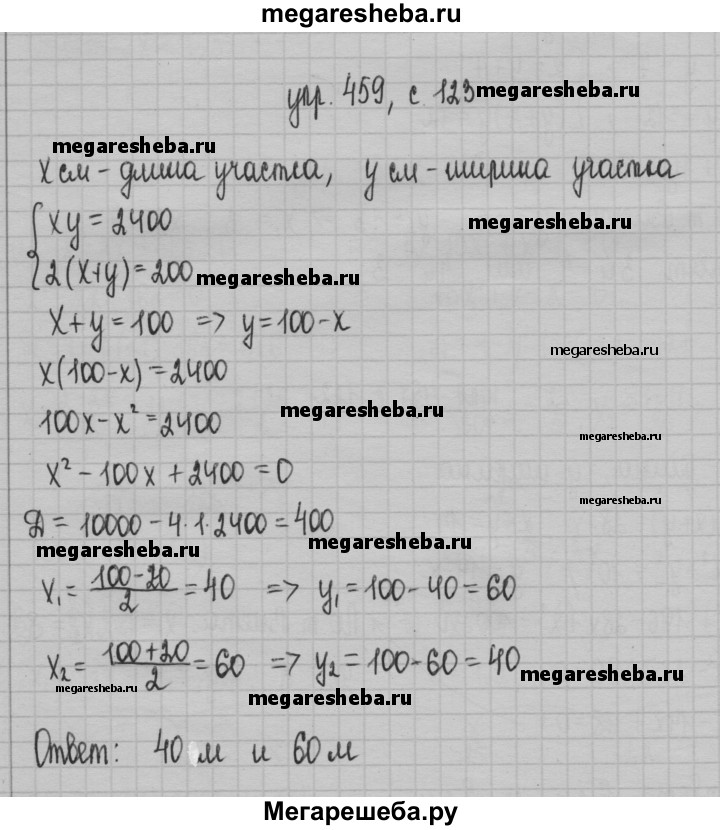 megaresheba.ru
упр. 459, с. 123 megaresheba.ru
megaresheba.ru
x см - длина участка, y см - ширина участка
xy = 2400 megaresheba.ru
2(x+y) = 200 megaresheba.ru
x+y = 100 => y = 100-x
megaresheba.ru
x(100-x) = 2400
100x - x² = 2400 megaresheba.ru
megaresheba.ru
x² - 100x + 2400 = 0
megaresheba.ru
Д = 10000 - 4·1·2400 = 400
megaresheba.ru megaresheba.ru
x₁ = (100-20)/2 = 40 => y₁ = 100-40 = 60
x₂ = (100+20)/2 = 60 => y₂ = 100-60 = 40 megaresheba.ru
megaresheba.ru megaresheba.ru
Ответ: 40 м и 60 м
Мегарешеба.ру